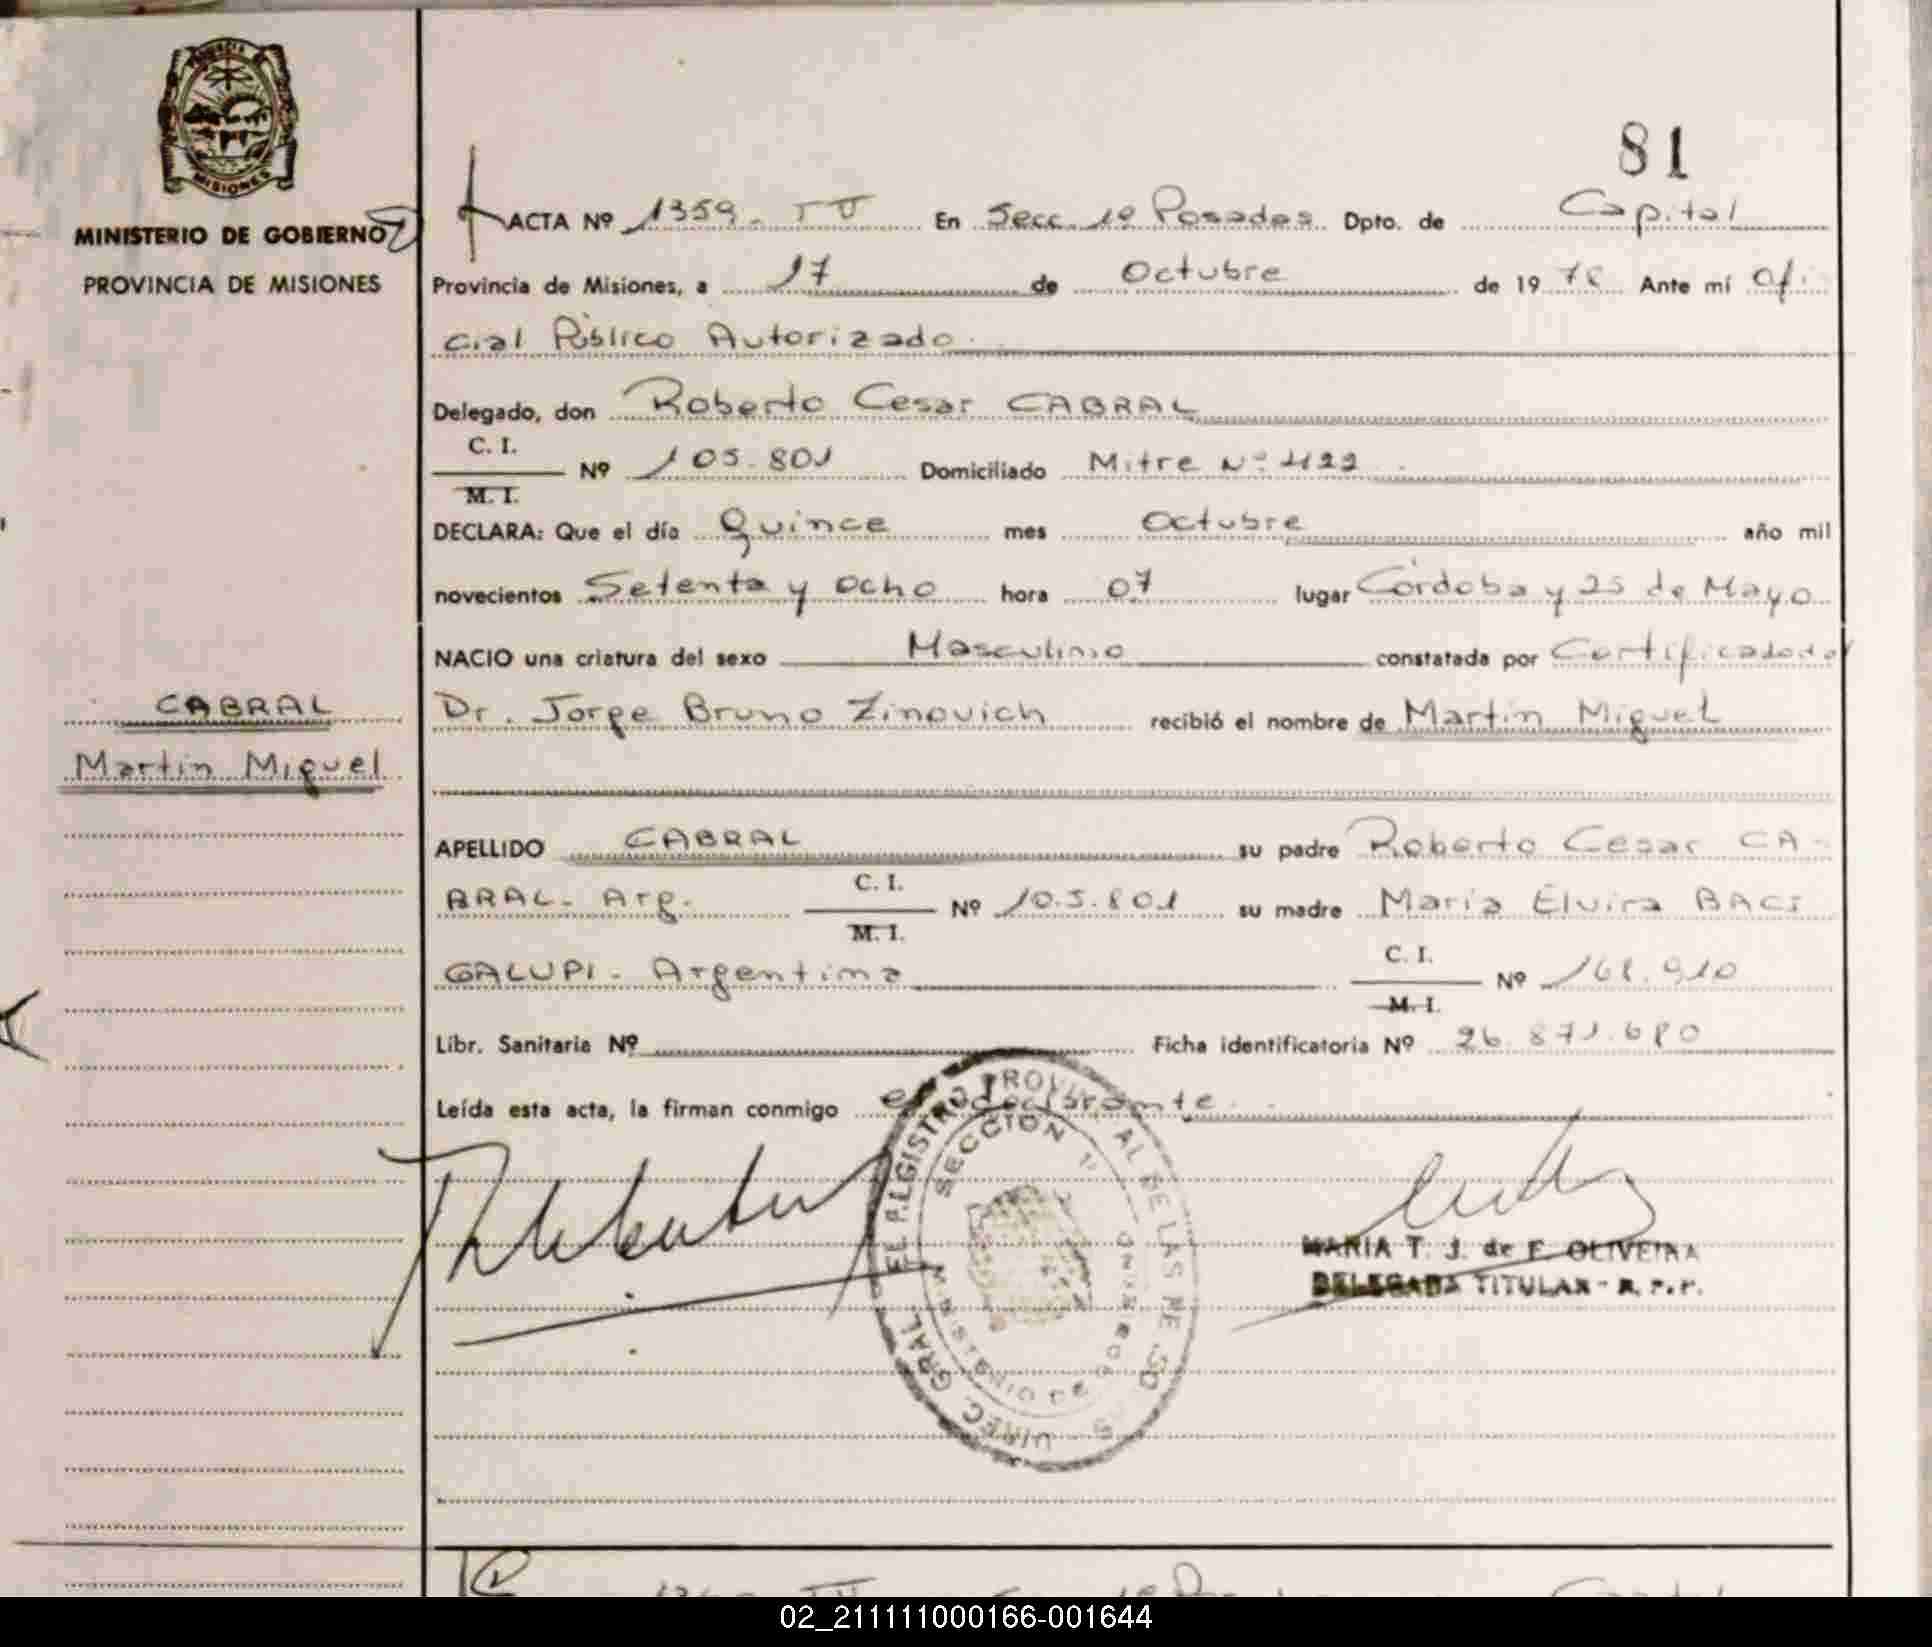 PROVINCIA DE
MISIONES
MINISTERIO DE GOBIERNO
PROVINCIA DE MISIONES
CABRAL
Martin Miguel
81
ACTA Nº 1359. TV En Secc. 1º Posadas. Dpto. de Capital
Provincia de Misiones, a 17 de Octubre de 1978 Ante mí Ofi
cial Público Autorizado.
Delegado, don Roberto Cesar CABRAL
C. I.
M. I.
Nº 105.801 Domiciliado Mitre Nº 422
DECLARA: Que el día Quince mes Octubre año mil
novecientos Setenta y Ocho hora 07 lugar Córdoba y 25 de Mayo
NACIO una criatura del sexo Masculino constatada por Certificado del
Dr. Jorge Bruno Zinovich recibió el nombre de Martin Miguel
APELLIDO CABRAL su padre Roberto Cesar CA-
BRAL. Arg. C. I. M. I. Nº 105.801 su madre Maria Elvira BACI
GALUPI. Argentina C. I. M. I. Nº 168.910
Libr. Sanitaria Nº Ficha identificatoria Nº 26.871.680
Leída esta acta, la firman conmigo el declarante.
DIREC. GRAL. DEL REGISTRO PROVINCIAL DE LAS PERSONAS
SECCION 1ª
MINISTERIO DE GOBIERNO
MARIA T. J. de F. OLIVEIRA
DELEGADA TITULAR - R. P. P.
02_211111000166-001644